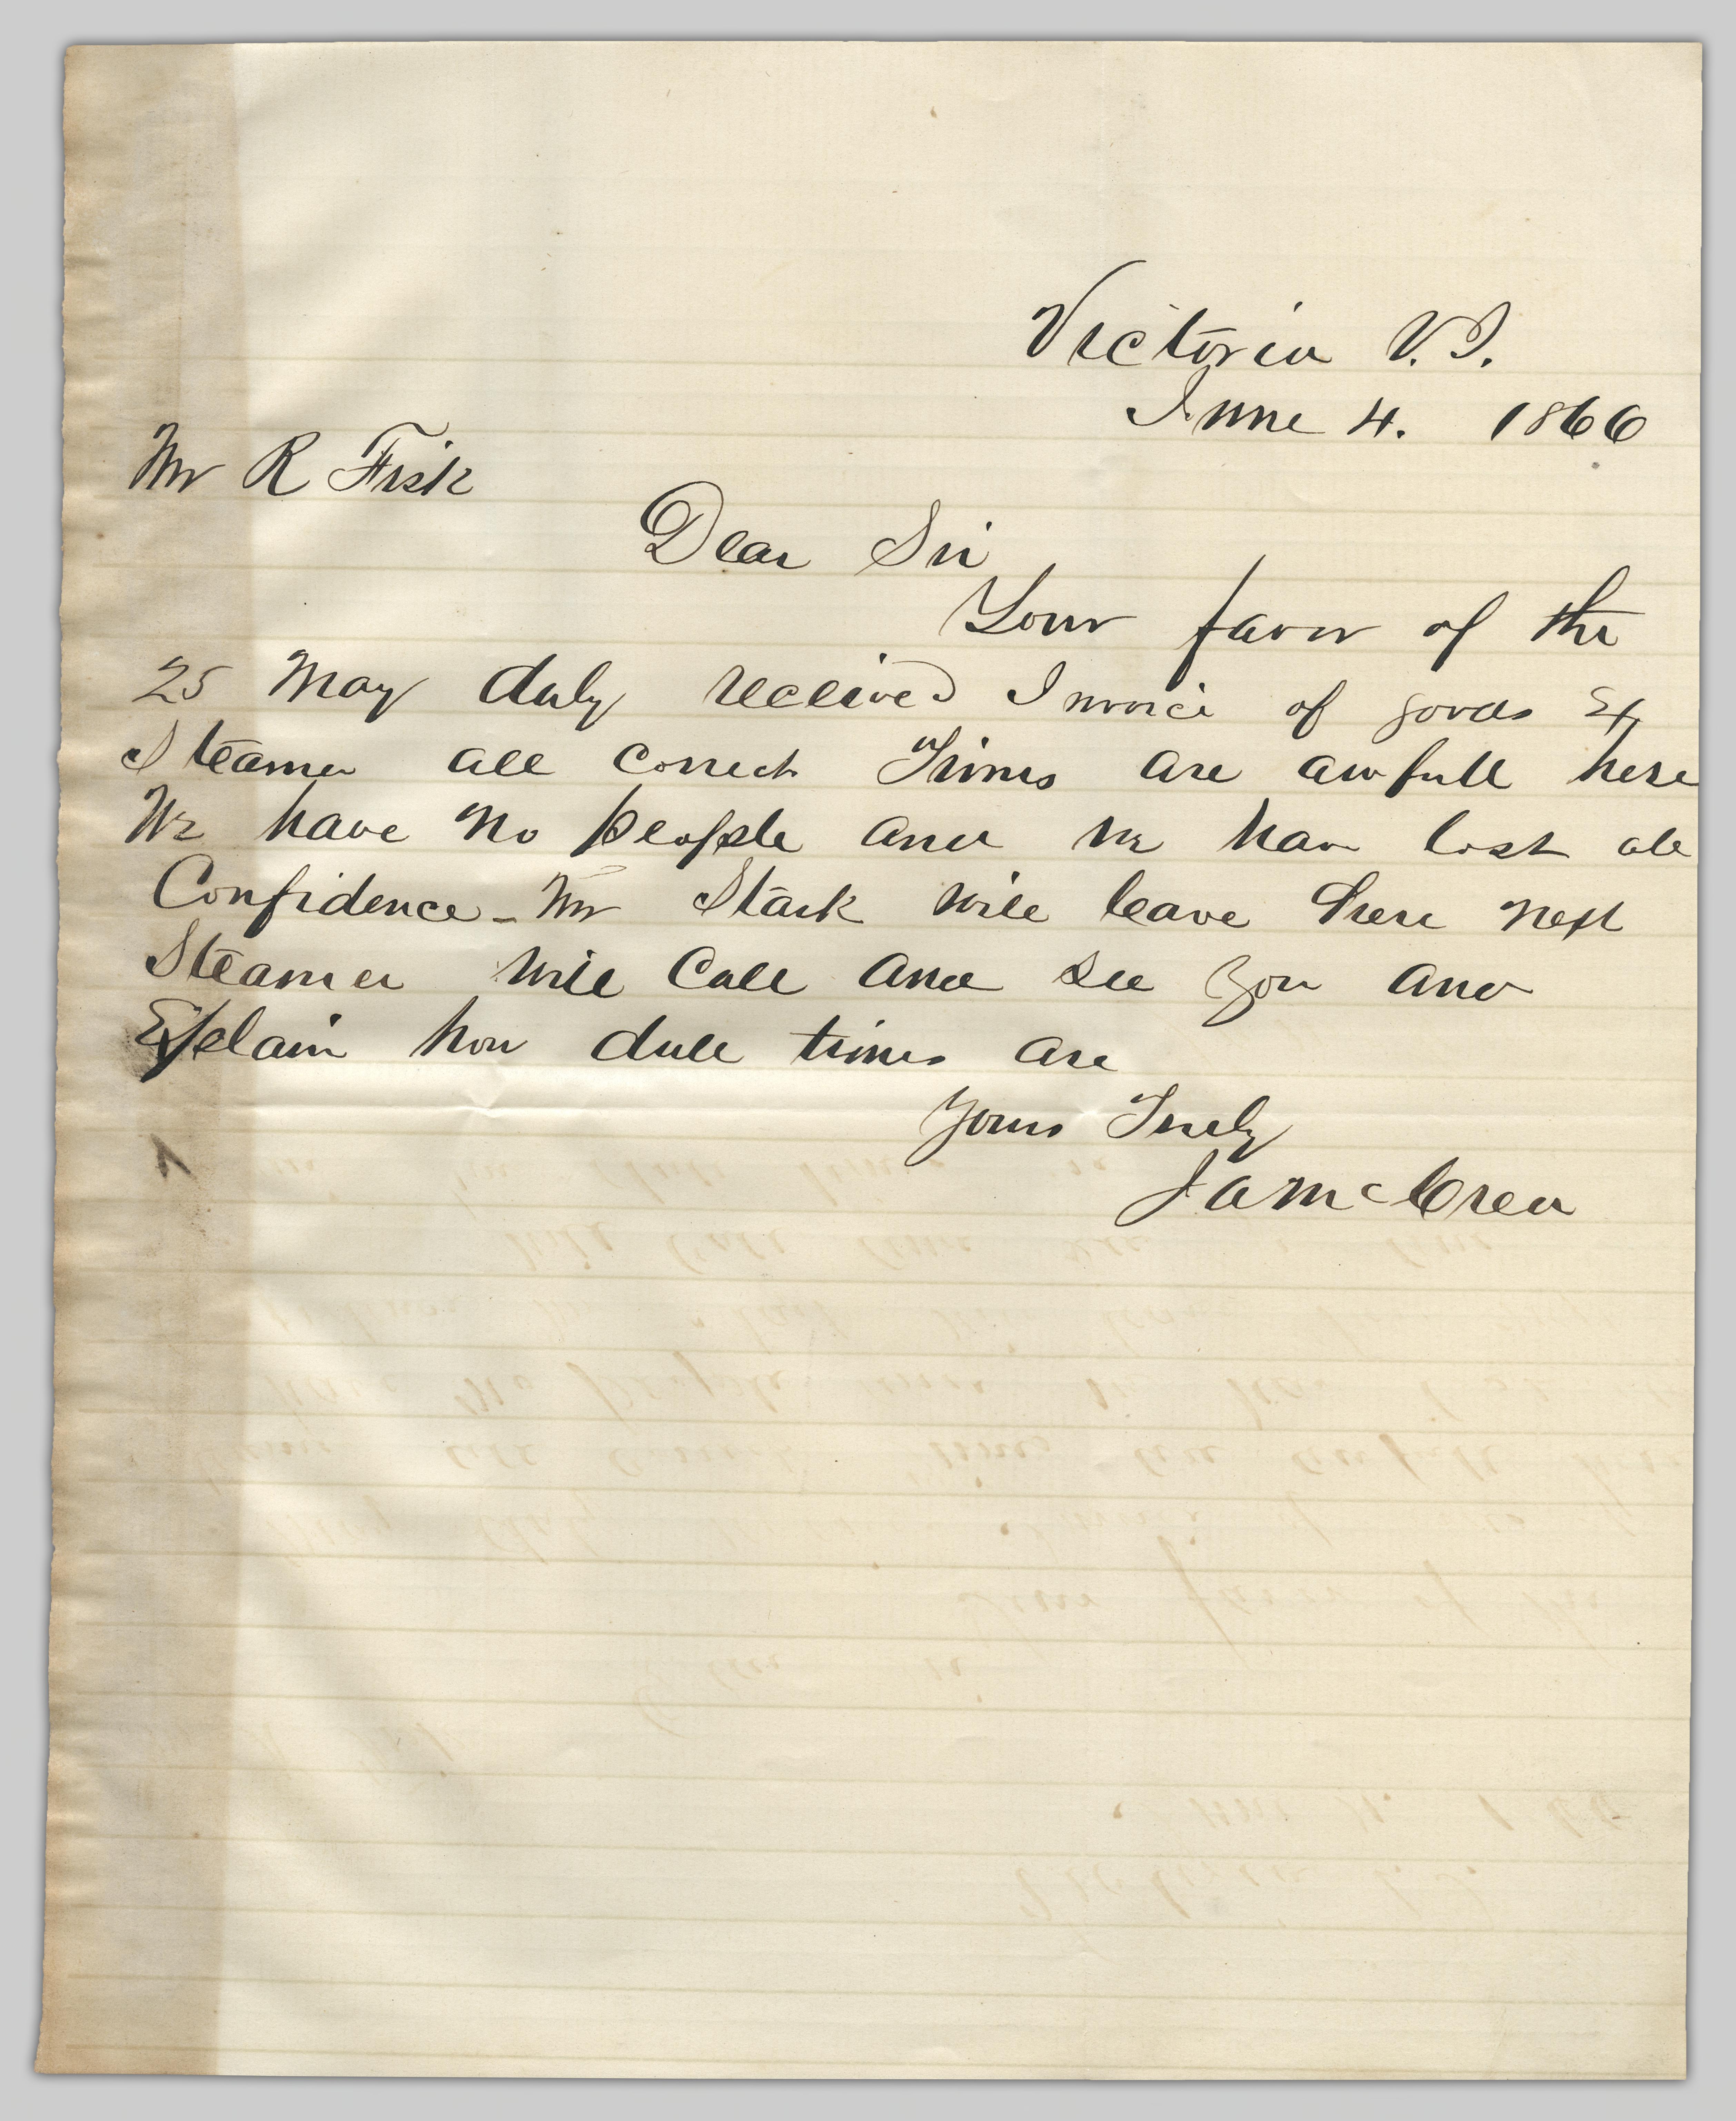 Victoria V.I.
June 4. 1866
Mr R Fisk
Dear Sir
Your favor of the
25 May duly received Invoice of goods Ex
Steamer all correct Times are awfull here
We have no people and we have lost all
Confidence - Mr Stark will leave here next
Steamer will Call and see you and
Explain how dull times are
Yours Truly
J A McCrea